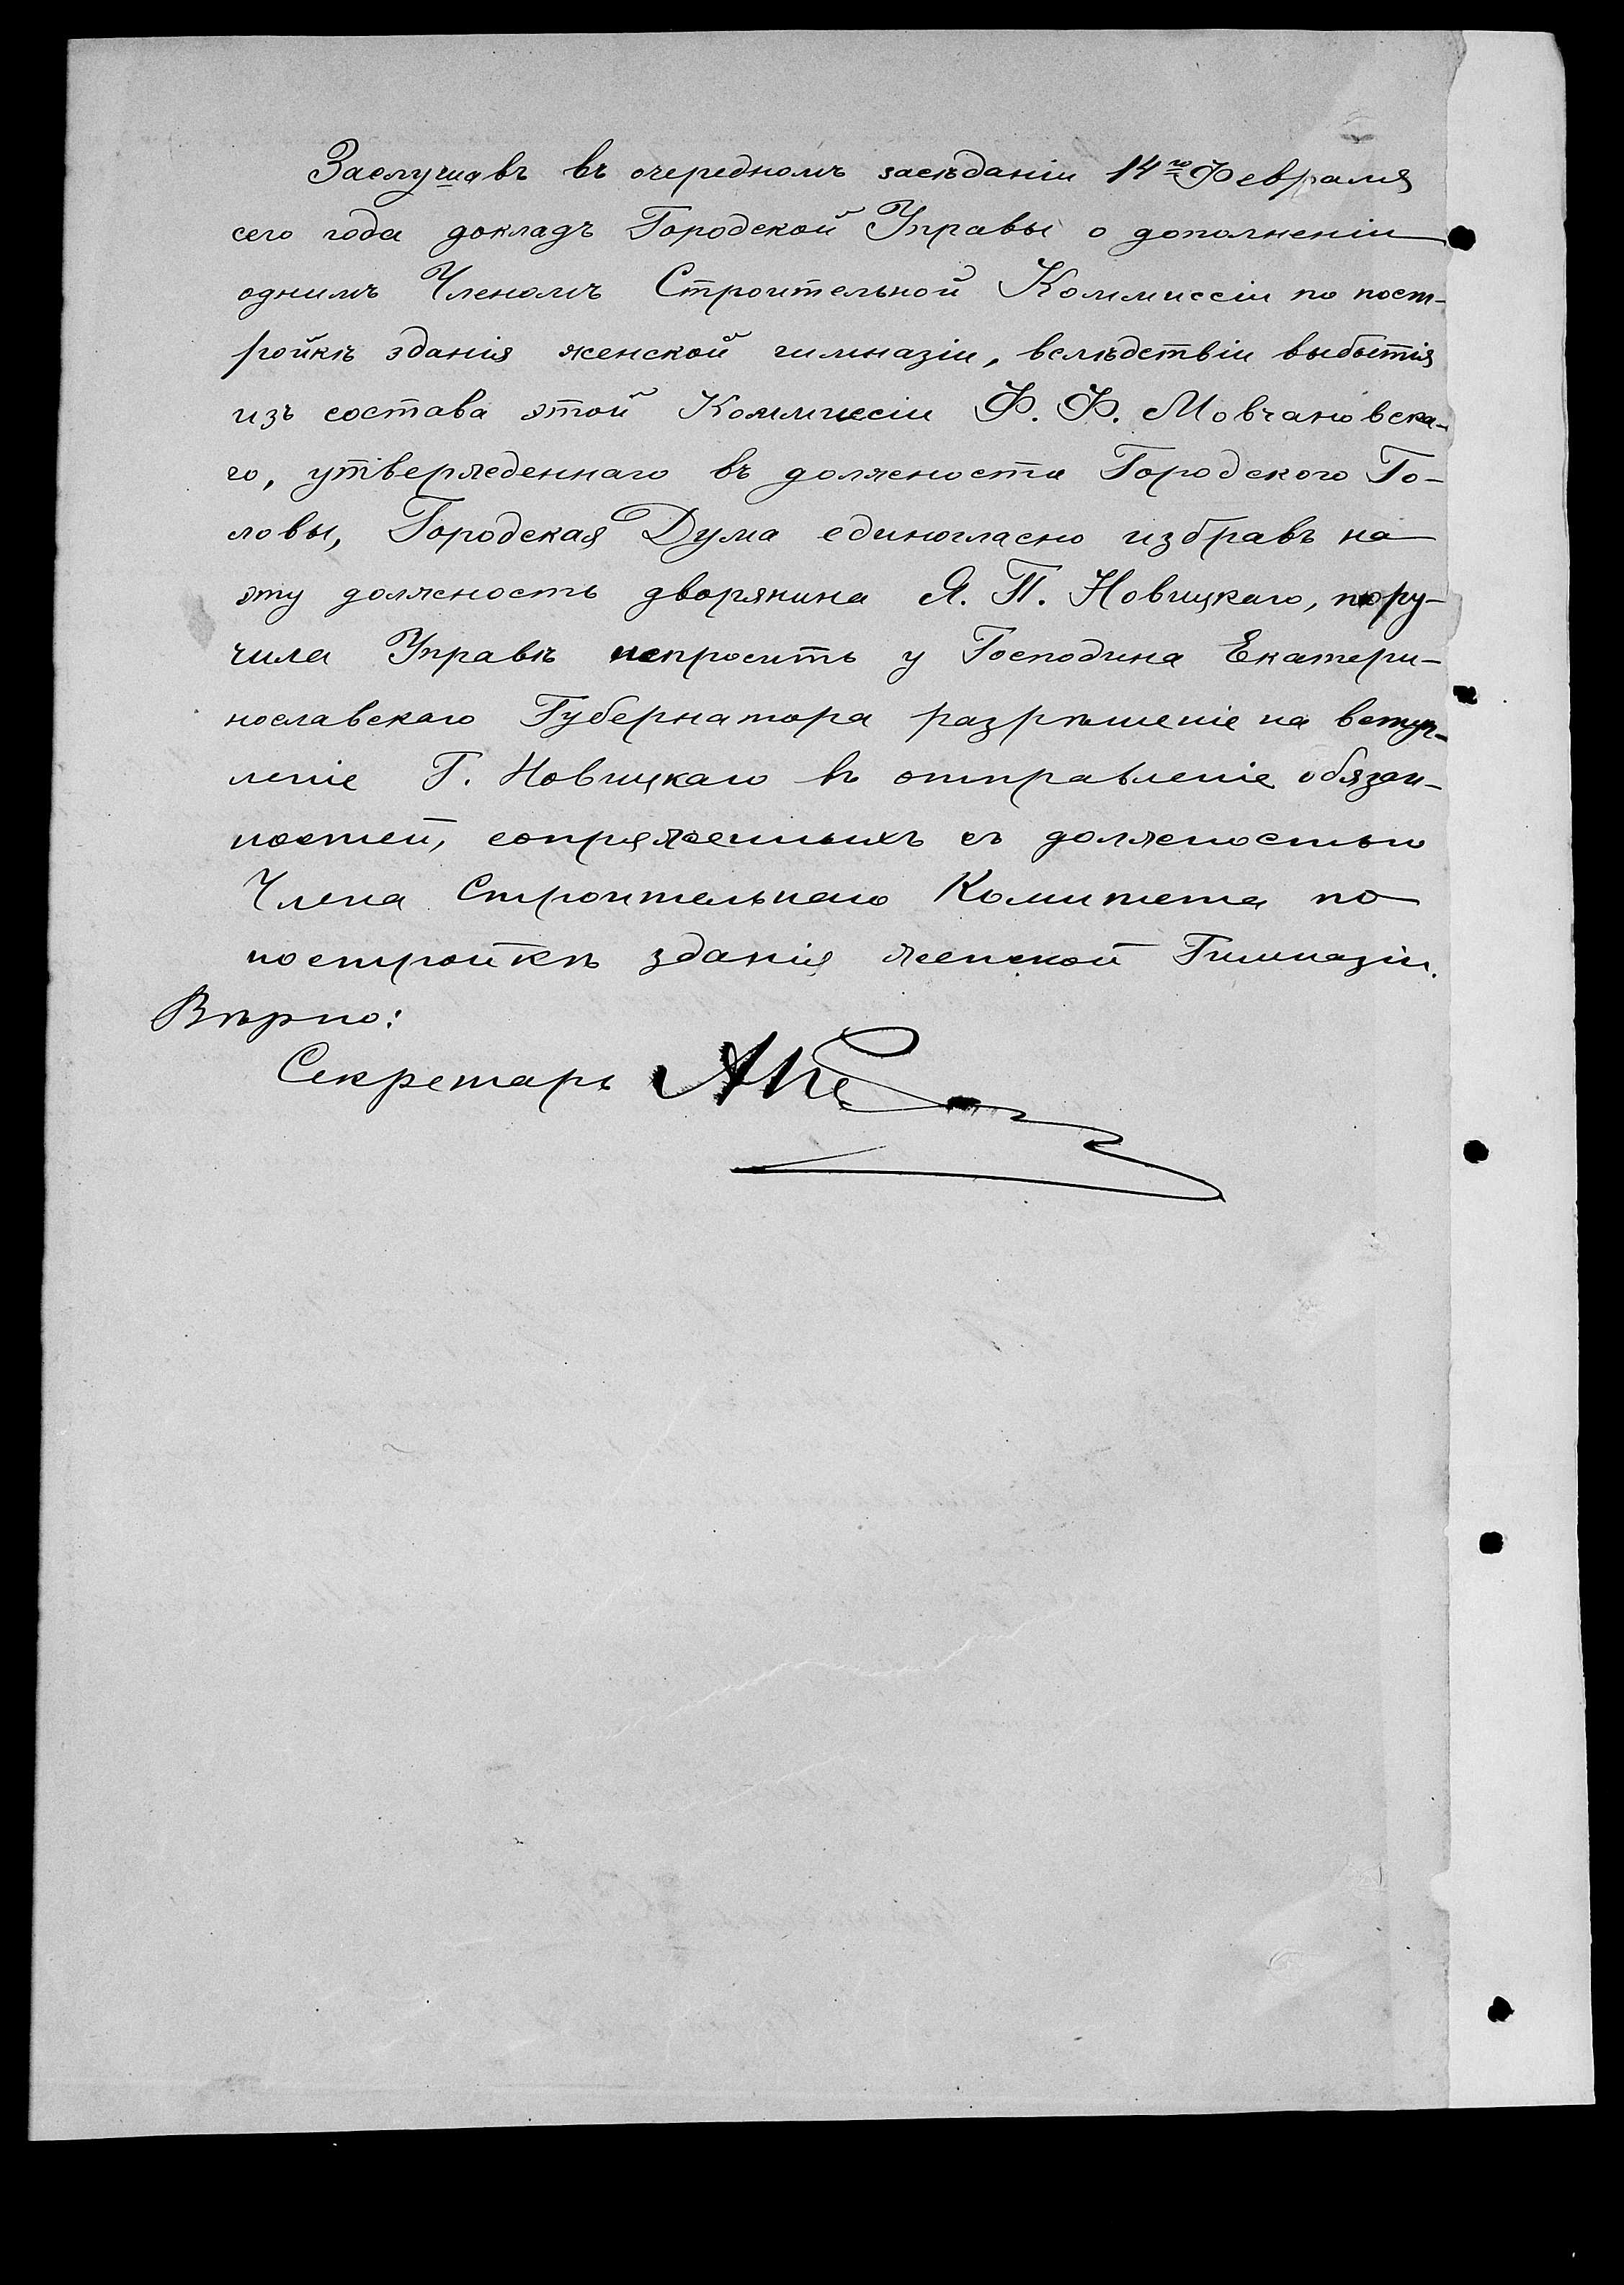 Заслушавъ въ очередномъ засѣданіи 14го Февраля
сего года докладъ Городской Управы о дополненіи
однимъ Членомъ Строительной Коммиссіи по пост-
ройкѣ зданія женской гимназіи, вслѣдствіи выбытія
изъ состава этой Коммиссіи Ф. Ф. Мовчановска-
го, утвержденнаго въ должности Городского Го-
ловы, Городская Дума единогласно избравъ на
эту должность дворянина Я. П. Новицкаго, пору-
чила Управѣ испросить у Господина Екатери-
нославскаго Губернатора разрѣшеніе на вступ-
леніе Г. Новицкаго въ отправленіе обязан-
ностей, сопряженныхъ съ должностью
Члена Строительнаго Комитета по
постройкѣ зданія женской Гимназіи.
Вѣрно:
Секретарь